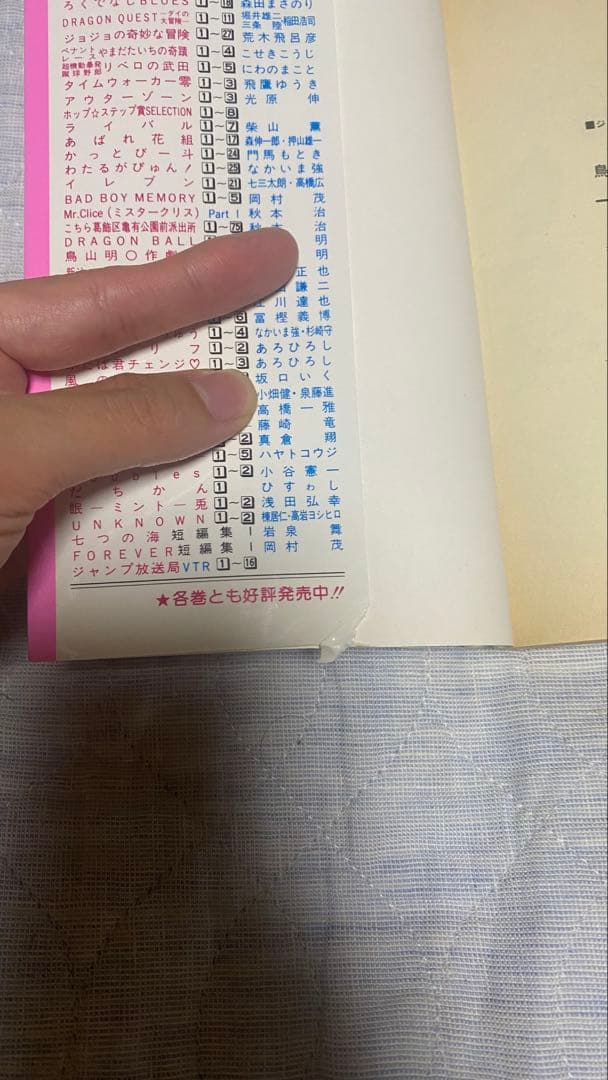 ろくでなしBLUES 1〜18 森田まさのり
DRAGON QUEST―ダイの大冒険― 1〜11 堀井雄二 三条陸 稲田浩司
ジョジョの奇妙な冒険 1〜27 荒木飛呂彦
ペナントレース やまだたいちの奇蹟 1〜4 こせきこうじ
超機動暴発蹴球野郎 リベロの武田 1〜5 にわのまこと
タイムウォーカー零 1〜3 飛鷹ゆうき
アウターゾーン 1〜3 光原 伸
ホップ☆ステップ賞SELECTION 1〜6
ライバル 1〜7 柴山 薫
あばれ花組 1〜17 森伸一郎・押山雄一
かっとび一斗 1〜24 門馬もとき
わたるがぴゅん! 1〜25 なかいま強
イレブン 1〜21 七三太朗・高橋広
BAD BOY MEMORY 1 岡村 茂
Mr.Clice(ミスタークリス) Part 1 秋本 治
こちら葛飾区亀有公園前派出所 1〜75 秋本 治
DRAGON BALL 明
鳥山明〇作劇 明
正也
謙二
江川達也
6 冨樫義博
ゅう 1〜4 なかいま強・杉崎守
リフ 1〜2 あろひろし
は君チェンジ♡ 1〜3 あろひろし
風の 坂口いく
小畑健・泉藤進
高橋一雅
藤崎 竜
〜2 真倉 翔
1〜5 ハヤトコウジ
bles 1〜2 小谷憲一
だちかん 1 ひすゎし
眠―ミント―兎 1〜2 浅田弘幸
UNKNOWN 1〜2 棟居仁・高岩ヨシヒロ
七つの海 短編集 1 岩泉 舞
FOREVER 短編集 1 岡村 茂
ジャンプ放送局VTR 1〜16
★各巻とも好評発売中!!
■ジ
鳥